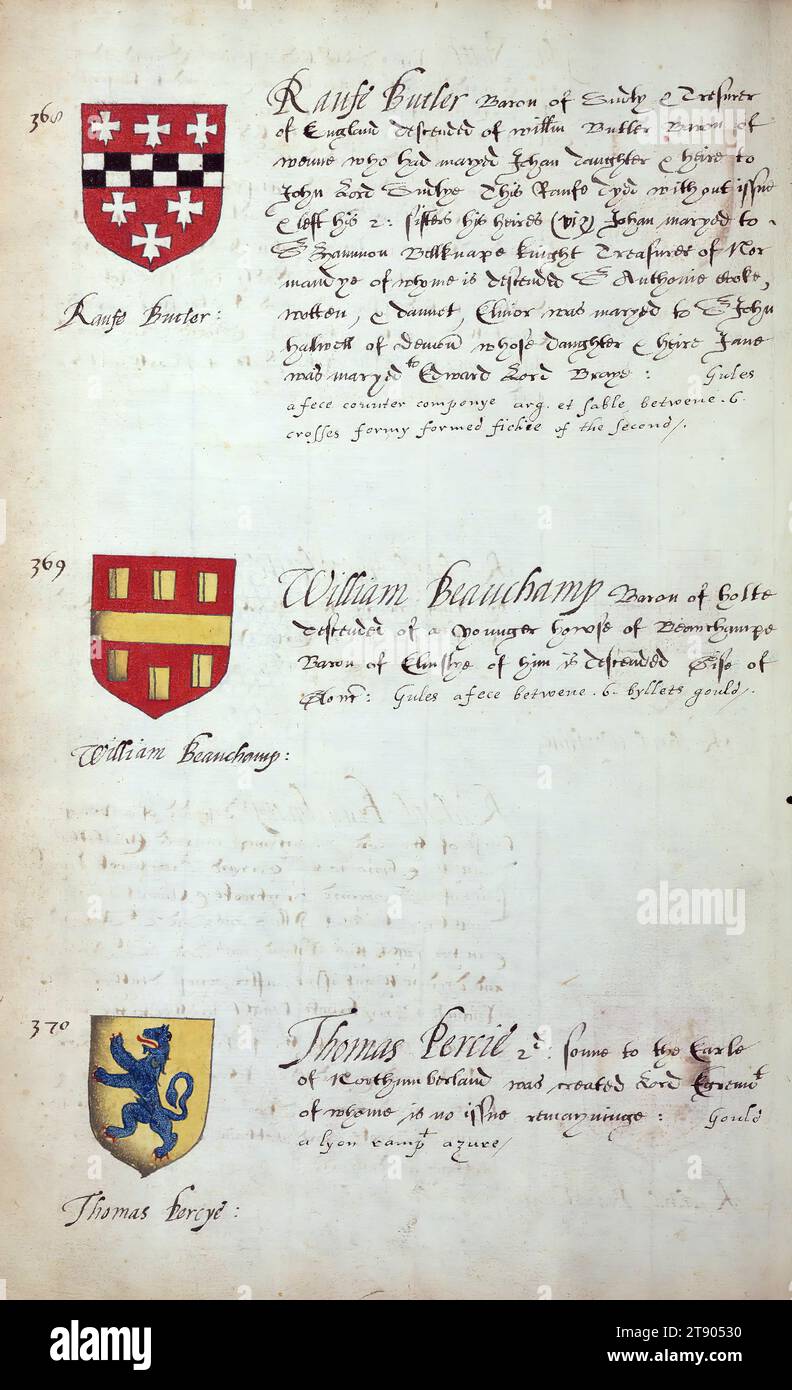 368
Raufe Butler Baron of Sudly & Tresurer
of England descended of willm Butler Baron of
wemme who had maryed Johan daughter & heire to
John Lord Sudlye This Raufe dyed without issue
& left his 2: sisters his heires (viz) Johan maryed to
S Hammon Bellknape knight Treasurer of Nor
mandye of whome is descended S Anthonie Cooke,
wotten, & dannet, Elinor was maryed to S John
halwell of devon whose daughter & heire Jane
was maryed to Edward Lord Braye: Gules
a fece counter componye arg. et sable betwene .6.
crosses formy formed fichie of the second/.
Raufe Butler:
369
William Beauchamp Baron of holte
descended of a younger howse of Beauchampe
Baron of Elmslye of him is descended Gise of
Glouc: Gules a fece betwene .6. byllets gould/.
William Beauchamp:
370
Thomas Percie 2d: sonne to the Earle
of Northumberland was created Lord Egremt
of whome is no issue remayninge: Gould
a lyon rampt azure/
Thomas Percye:
alamy
alamy
alamy
Image ID: 2T90530
www.alamy.com